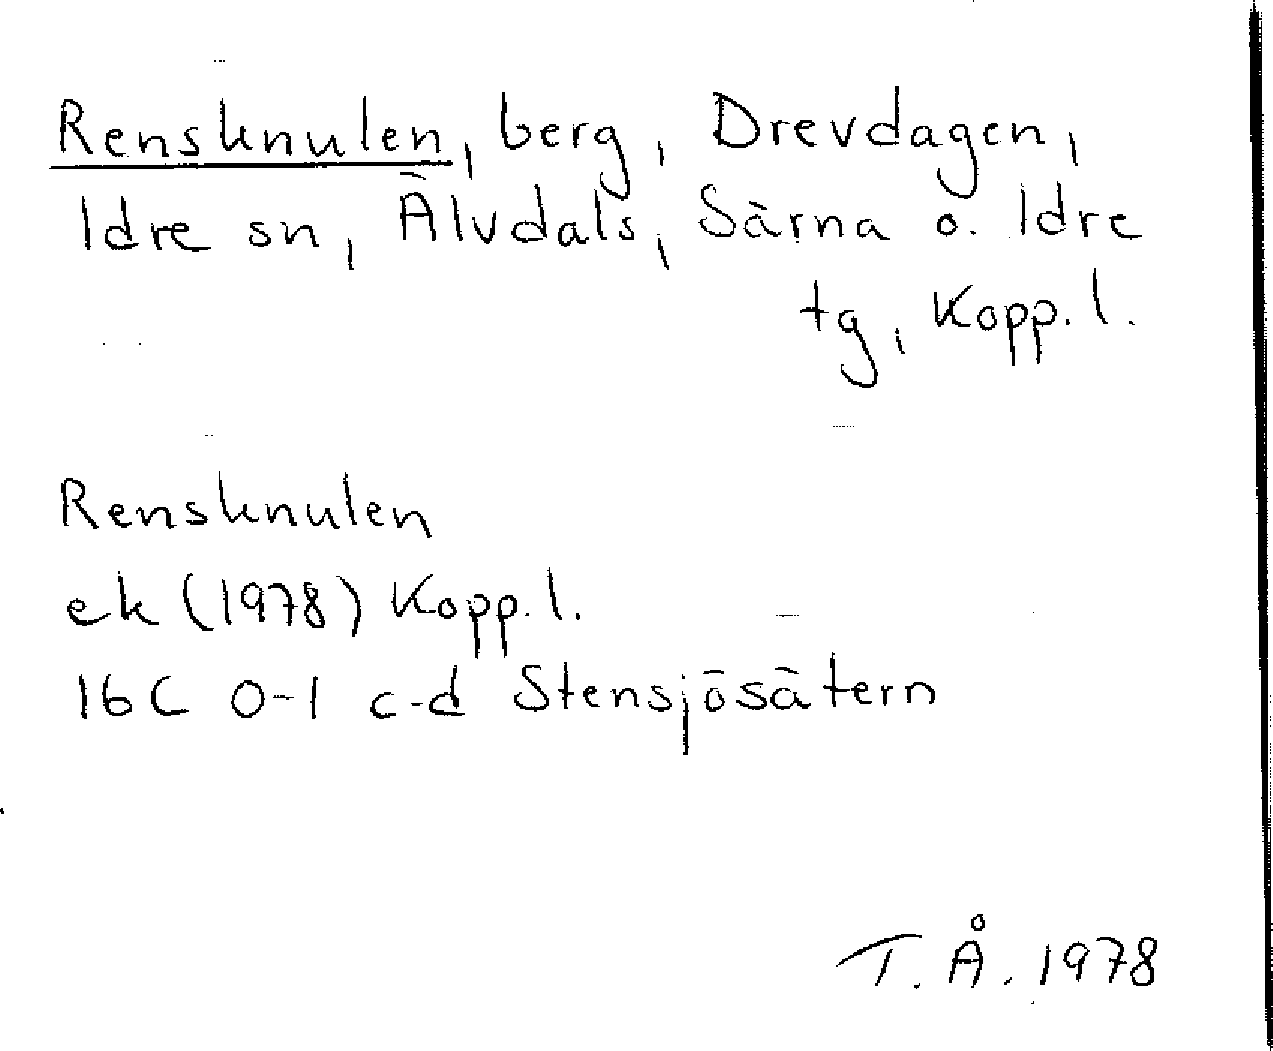 Rensknulen, berg, Drevdagen,
Idre sn, Älvdals, Särna o. Idre
tg, Kopp. l.
Rensknulen
ek (1978) Kopp. l.
16C 0-1 c-d Stensjösätern
T. Å. 1978